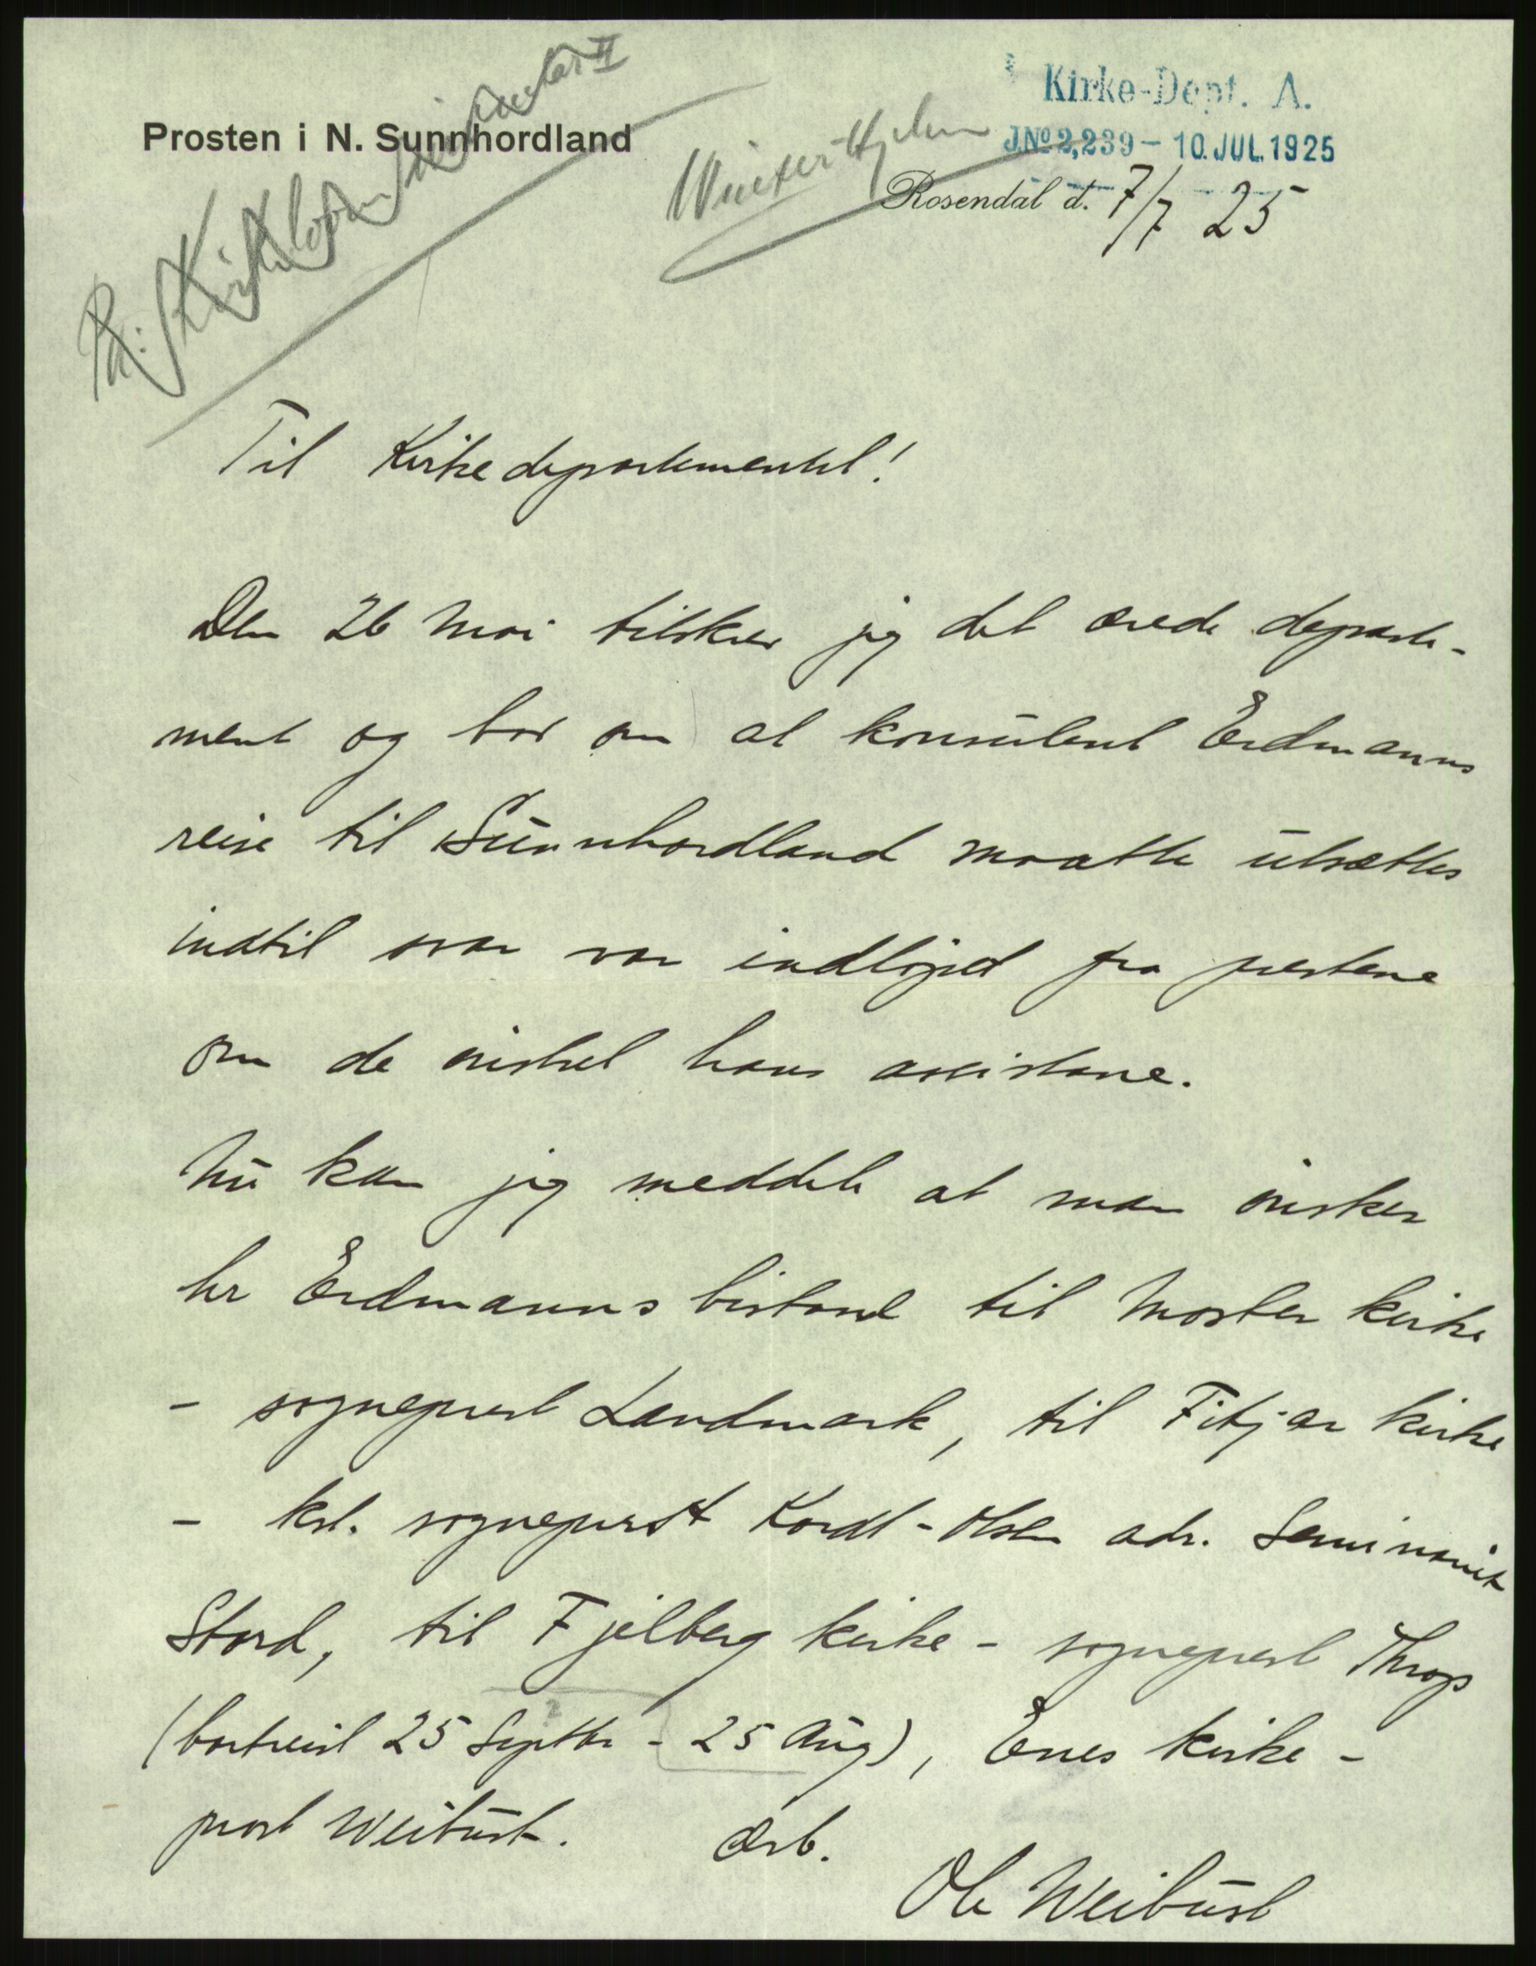 Kirke-Dept. A.
Prosten i N. Sunnhordland
J.No 2,239 - 10. JUL. 1925
Winter-Hjelm
Rosendal d. 7/7 25
Til Kirkedepartementet!
Den 26 Mai tilskrev jeg det ærede departe-
ment og bad om at konsulent Erdmanns
reise til Sunnhordland maatte utsættes
indtil svar var indløpet fra prestene
om de ønsket hans assistance.
Nu kan jeg meddele at man ønsker
hr Erdmanns bistand til Moster kirke
- sogneprest Landmark, til Fitjar kirke
- kst. sogneprest Kordt-Olsen adr. Seminariet
Stord, til Fjelberg kirke - sogneprest Thrap
(bortreist 25 Septbr - 25 Aug), Enes kirke -
prost Weibust. Ærb.
Ole Weibust